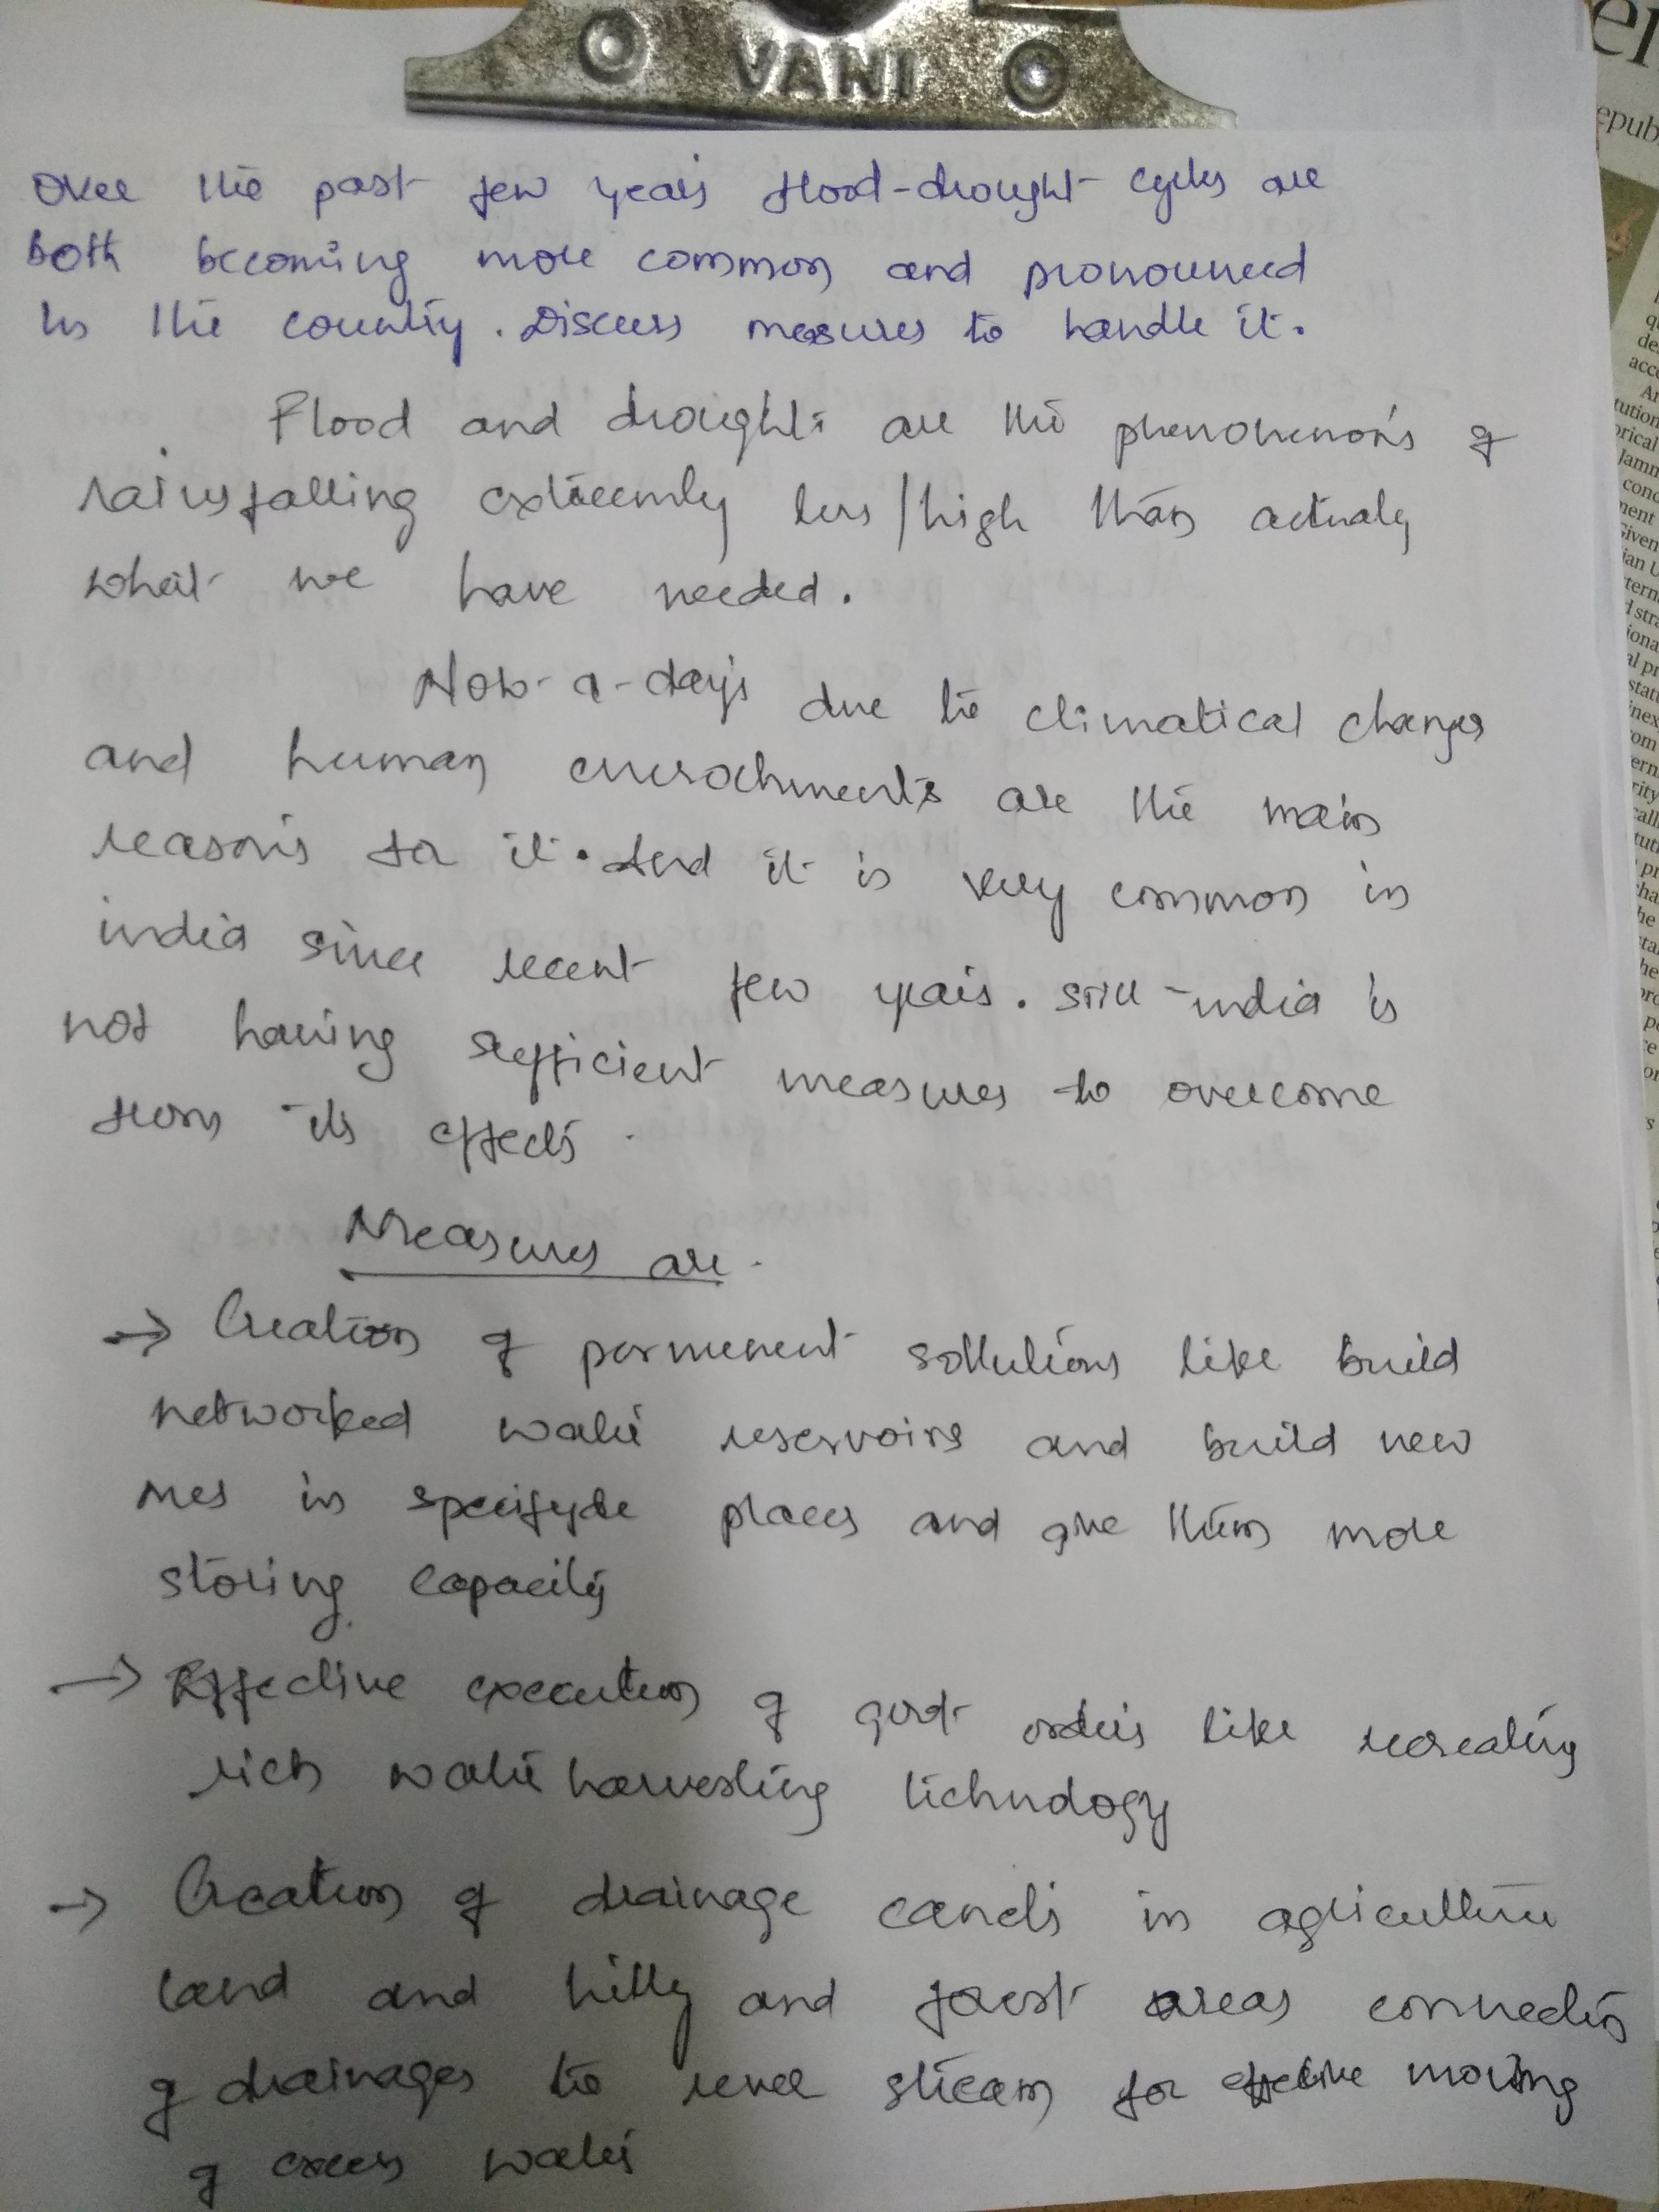 VANI
Over the past few years flood-drought cycles are
both becoming more common and pronounced
in the country. Discuss measures to handle it.
Flood and droughts are the phenomenon's of
rainsfalling extreemly less/high than actualy
what we have needed.
Now-a-days due to climatical changes
and human encrochments are the main
reasons for it. And it is very common in
india since recent few years. still india is
not having sufficient measures to overcome
from its effects.
Measures are.
→ Creation of permenent sollutions like build
networked water reservoirs and build new
ones in places and give them more
storing capacity
→ Effective execution of govt orders like recreating
rich water harvesting technology
→ Creation of drainage canels in agriculture
land and hilly and forest areas connecting
of drainages to river stream for effective moving
of excess water
er
epub